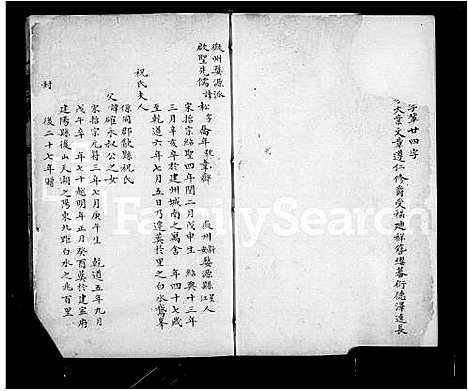 字輩廿四字
大業文章遵仁修爵受福廸祥蔭纘蕃衍德澤遠長
徽州婺源派
啟聖先儒諱松字喬年號韋齋
徽州婺源縣人
宋哲宗紹聖四年閏二月戊申生 紹興十三年
三月辛亥卒於建州城南之寓舍 年四十七歲
至乾道六年七月五日乃遷葬於里之白水鵞峯
祝氏夫人
係同郡歙縣祝氏
父諱確永叔公之女
宋哲宗元符三年七月庚午生 乾道五年九月
戊午卒年七十越明年正月癸酉葬於建寧府
建陽縣後山天湖之陽東北距白水之兆百里
後二十七年贈
封
FamilySearch